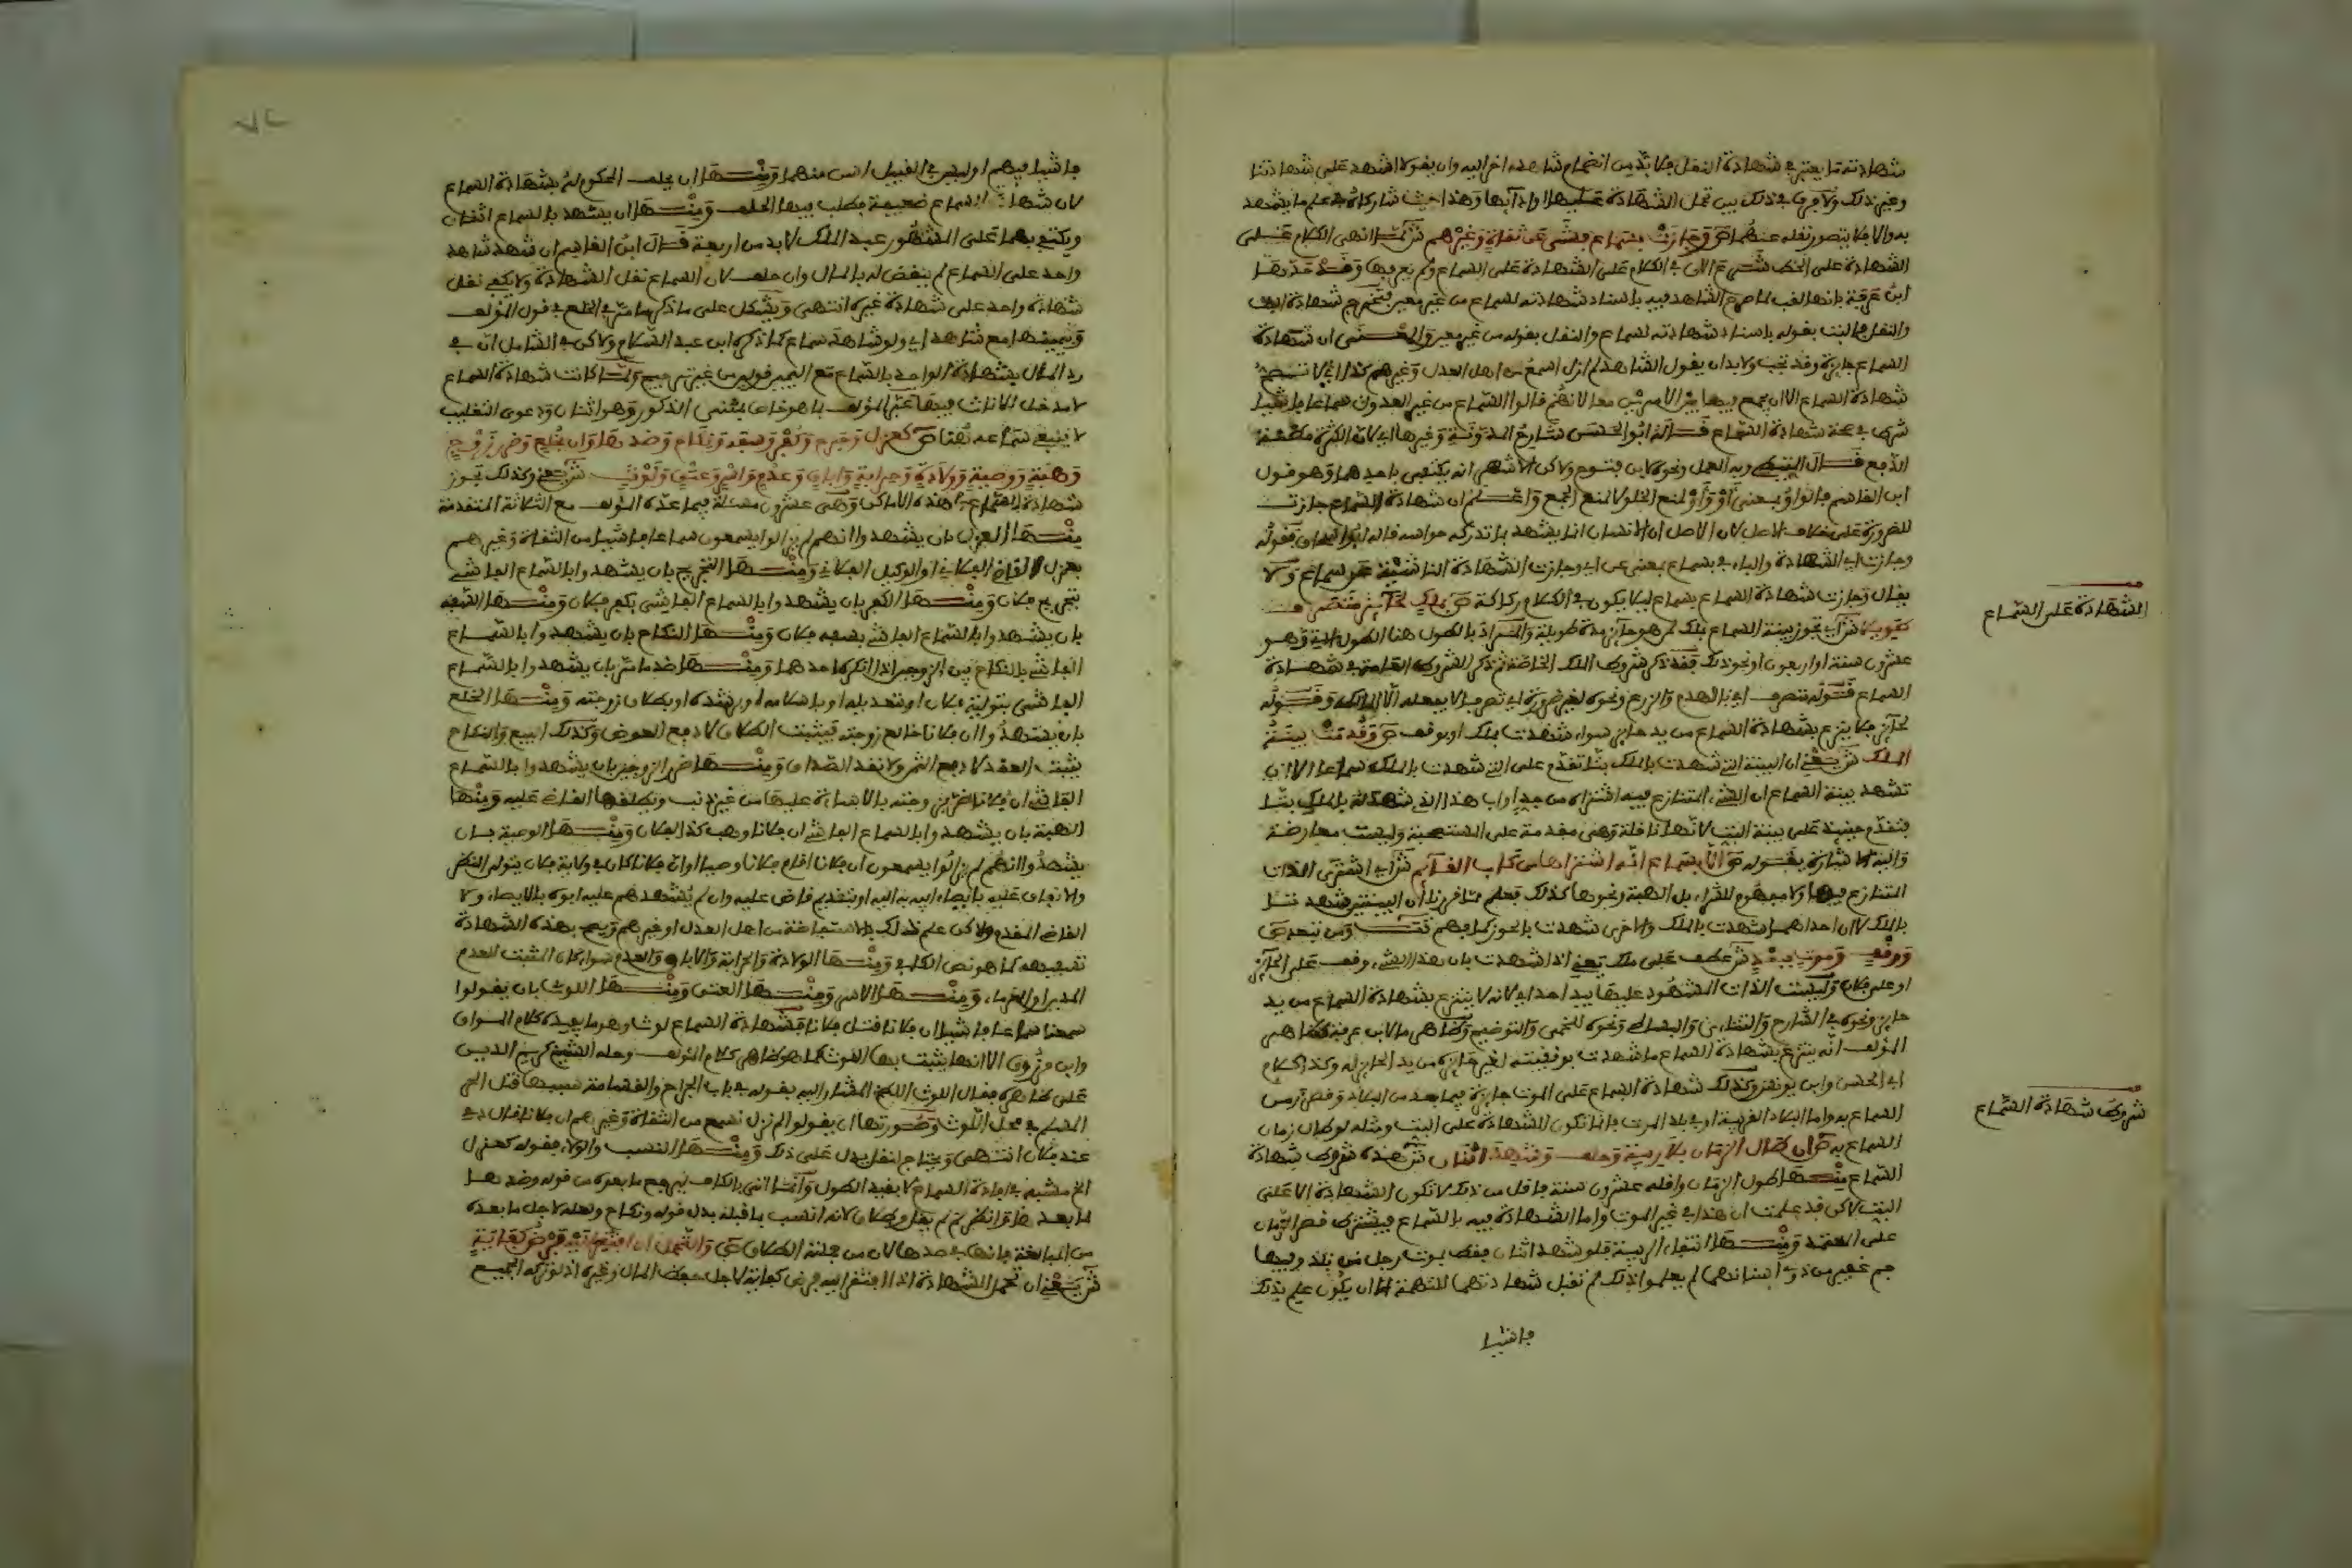 شهادته ما يعتبر في شهادة النقل فلا بد من انضمام شاهد اخر اليه وان يقولا اشهد على شهادتنا
وغير ذلك ولا فرق في ذلك بين تحمل الشهادة عليها او ادايها وهذا حيث شاركاه في علم ما يشهد
به والا فلا يتصور نقله عنهما ص وجازت بسماع فشى عن ثقات وغيرهم ش لما انهى الكلام على
الشهادة على الخط شرع الان في الكلام على الشهادة على السماع ولم يعرفها وقد حدها
ابن عرفة بانها لقب لما صرح الشاهد فيه باسناد شهادته لسماع من غير معين فتخرج شهادة البت
والنقل فالبت بقوله باسناد شهادته لسماع والنقل بقوله من غير معين والمعنى ان شهادة
السماع جايزة وقد تجب ولا بد ان يقول الشاهد لم ازل اسمع من اهل العدل وغيرهم كذا اي لا تصح
شهادة السماع الا ان يجمع فيها بين الامرين معا لانهم قالوا السماع من غير العدول سماعا فاشيا
شرط في صحة شهادة السماع قاله ابو الحسن شارح المدونة وغيرها
ابن القاسم فالواو بمعنى او واو لمنع الخلو لا لمنع الجمع واعلم ان شهادة السماع جازت
للضرورة على خلاف الاصل لان الاصل ان الانسان انما يشهد بما تدركه حواسه
وجازت اي الشهادة والباء في بسماع بمعنى عن اي وجازت الشهادة الناشية عن سماع ولا
يقال وجازت شهادة السماع بسماع ليلا يكون في الكلام ركاكة ص بملك لحايز متصرف
طويلا ش اي تجوز بينة السماع بملك لمن هو حايز مدة طويلة والمراد بالطول هنا
عشرون سنة او اربعون او نحو ذلك فقد ذكر شروط الملك الخاصة ثم ذكر الشروط العامة في شهادة
السماع فقوله متصرف اي بالهدم والزرع ونحوه لغير ضرورة اي تصرفا لا يفعله الا المالك وقوله
لحايز فلا ينزع بشهادة السماع من يد حايز سواء شهدت بملك او بوقف ص وقدمت بينة
الملك ش يعني ان البينة التي شهدت بالملك بتا تقدم على التي شهدت بالملك سماعا الا ان
تشهد بينة السماع ان الشيء المتنازع فيه اشتراه من جد او اب هذا الذي شهد له بالملك بتا
فتقدم حينيذ على بينة البت لانها ناقلة وهي مقدمة على المستصحبة وليست معارضة
واليه الاشارة بقوله ص الا بسماع انه اشتراها من كاب القايم ش اي اشترى الذات
المتنازع فيها ولا مفهوم للشراء بل الهبة ونحوها كذلك
بالملك لان احداهما شهدت بالملك والاخرى شهدت بالحوز
ووقف وموت ببعد ش عطف على ملك يعني اذا شهدت بان هذا الشيء وقف على الحايز
او على فلان وليست الذات المشهود عليها بيد احد اي لانه لا ينزع بشهادة السماع من يد
حايز ونحوه في الشارح والتتاءي والبساطي ونحوه للخمي والتوضيح
المولف انه ينزع بشهادة السماع ما شهدت بوقفيته لغير حايزه من يد الحايز له وكذا كلام
ابي الحسن وابن يونس وكذلك شهادة السماع على الموت جايزة فيما بعد من البلاد
السماع به واما البلاد القريبة او في بلد الموت فانما تكون الشهادة على البت ومثله لو طال زمان
السماع به ص ان طال الزمان بلا ريبة وحلف وشهد اثنان ش هذه شروط شهادة
السماع منها طول الزمان واقله عشرون سنة فاقل من ذلك لا تكون الشهادة الا على
البت لاكن قد علمت ان هذا في غير الموت واما الشهادة فيه بالسماع فيشترط قصر الزمان
على المعتمد ومنها انتفاء الريبة فلو شهد اثنان فقط بموت رجل من بلد وفيها
جم غفير من ذوي اسنانهما لم يعلموا ذلك لم تقبل شهادتهما للتهمة الا ان يكون علم ذلك
فاشيا
الشهادة على السماع
شروط شهادة السماع
فاشيا فيهم او ليس في القبيل اسن منهما ومنها ان يحلف المحكوم له بشهادة السماع
لان شهادة السماع ضعيفة فطلب فيها الحلف ومنها ان يشهد بالسماع اثنان
ويكتفى بهما على المشهور عبد الملك لا بد من اربعة قال ابن القاسم ان شهد شاهد
واحد على السماع لم يقض له بالمال وان حلف لان السماع نقل الشهادة ولا يكفي نقل
شهادة واحد على شهادة غيره انتهى ويشكل على ما ذكر ما مر في الخلع في قول المولف
وبيمينها مع شاهد اي ولو شاهد سماع كما ذكره ابن عبد السلام ولاكن في الشامل ان في
رد المال بشهادة الواحد بالسماع مع اليمين قولين من غير ترجيح ولما كانت شهادة السماع
لا مدخل للاناث فيها عبر المولف بما هو خاص بجنس الذكور وهو اثنان ودعوى التغليب
لا ينبغي سماعه هنا ص كعزل وجرح وكفر وسفه ونكاح وضدها وان بخلع وضرر زوج
وهبة ووصية وولادة وحرابة واباق وعدم واسر وعتق ولوث ش يعني وكذلك تجوز
شهادة السماع في هذه الاماكن وهي عشرون مسئلة فيما عده المولف مع الثلاثة المتقدمة
منها العزل بان يشهدوا انهم لم يزالوا يسمعون سماعا فاشيا من الثقات وغيرهم
بعزل القاضي الفلاني او الوكيل الفلاني ومنها التجريح بان يشهدوا بالسماع الفاشي
بتجريح فلان ومنها الكفر بان يشهدوا بالسماع الفاشي بكفر فلان ومنها السفه
بان يشهدوا بالسماع الفاشي بسفه فلان ومنها النكاح بان يشهدوا بالسماع
الفاشي بالنكاح بين الزوجين اذا انكر احدهما ومنها ضد ما مر بان يشهدوا بالسماع
الفاشي بتولية فلان او بتعديله او باسلامه او برشده او بطلاق زوجته ومنها الخلع
بان يشهدوا ان فلانا خالع زوجته فيثبت الطلاق لا دفع العوض وكذلك البيع والنكاح
يثبت العقد لا دفع الثمن ولا نقد الصداق ومنها ضرر الزوجين بان يشهدوا بالسماع
الفاشي ان فلانا اضر بزوجته بالاساءة عليها من غير ذنب ويطلقها القاضي عليه ومنها
الهبة بان يشهدوا بالسماع الفاشي ان فلانا وهب كذا لفلان ومنها الوصية بان
يشهدوا انهم لم يزالوا يسمعون ان فلانا اقام فلانا وصيا او ان فلانا كان في ولاية فلان يتولى النظر
والانفاق عليه بايصاء ابيه به اليه او بتقديم قاض عليه وان لم يشهدهم عليه ابوه بالايصاء ولا
القاضي المقدم ولاكن علم ذلك بالاستفاضة من اهل العدل او غيرهم ويصح بهذه الشهادة
تسفيهه كما هو نص الكافي ومنها الولادة والحرابة والاباق والعدم سواء كان المثبت للعدم
المدين او الغرماء ومنها الاسر ومنها العتق ومنها اللوث بان يقولوا
سمعنا سماعا فاشيا ان فلانا قتل فلانا فشهادة السماع لوث وهو ما يفيده كلام المواق
وابن مرزوق الا انها يثبت بها اللوث كما هو ظاهر كلام المولف وحله الشيخ كريم الدين
على ظاهره فقال اللوث اللطخ المشار اليه بقوله في باب الجراح والقسامة سببها قتل الحر
المسلم في محل اللوث وصورتها ان يقولوا لم نزل نسمع من الثقات وغيرهم ان فلانا قال دمي
عند فلان انتهى ويحتاج لنقل يدل على ذلك ومنها النسب والولاء فقوله كعزل
الخ مشبه في افادة السماع لا بقيد الطول وانما اتى بالكاف ليرجع ما بعده من قوله وضدها
لما بعد
من المبالغة فانها في ضدها لان من جملته الطلاق ص والتحمل ان افتقر اليه فرض كفاية
ش يعني ان تحمل الشهادة اذا افتقر اليه فرض كفاية لاجل حفظ المال وغيره اذ لو تركه الجميع